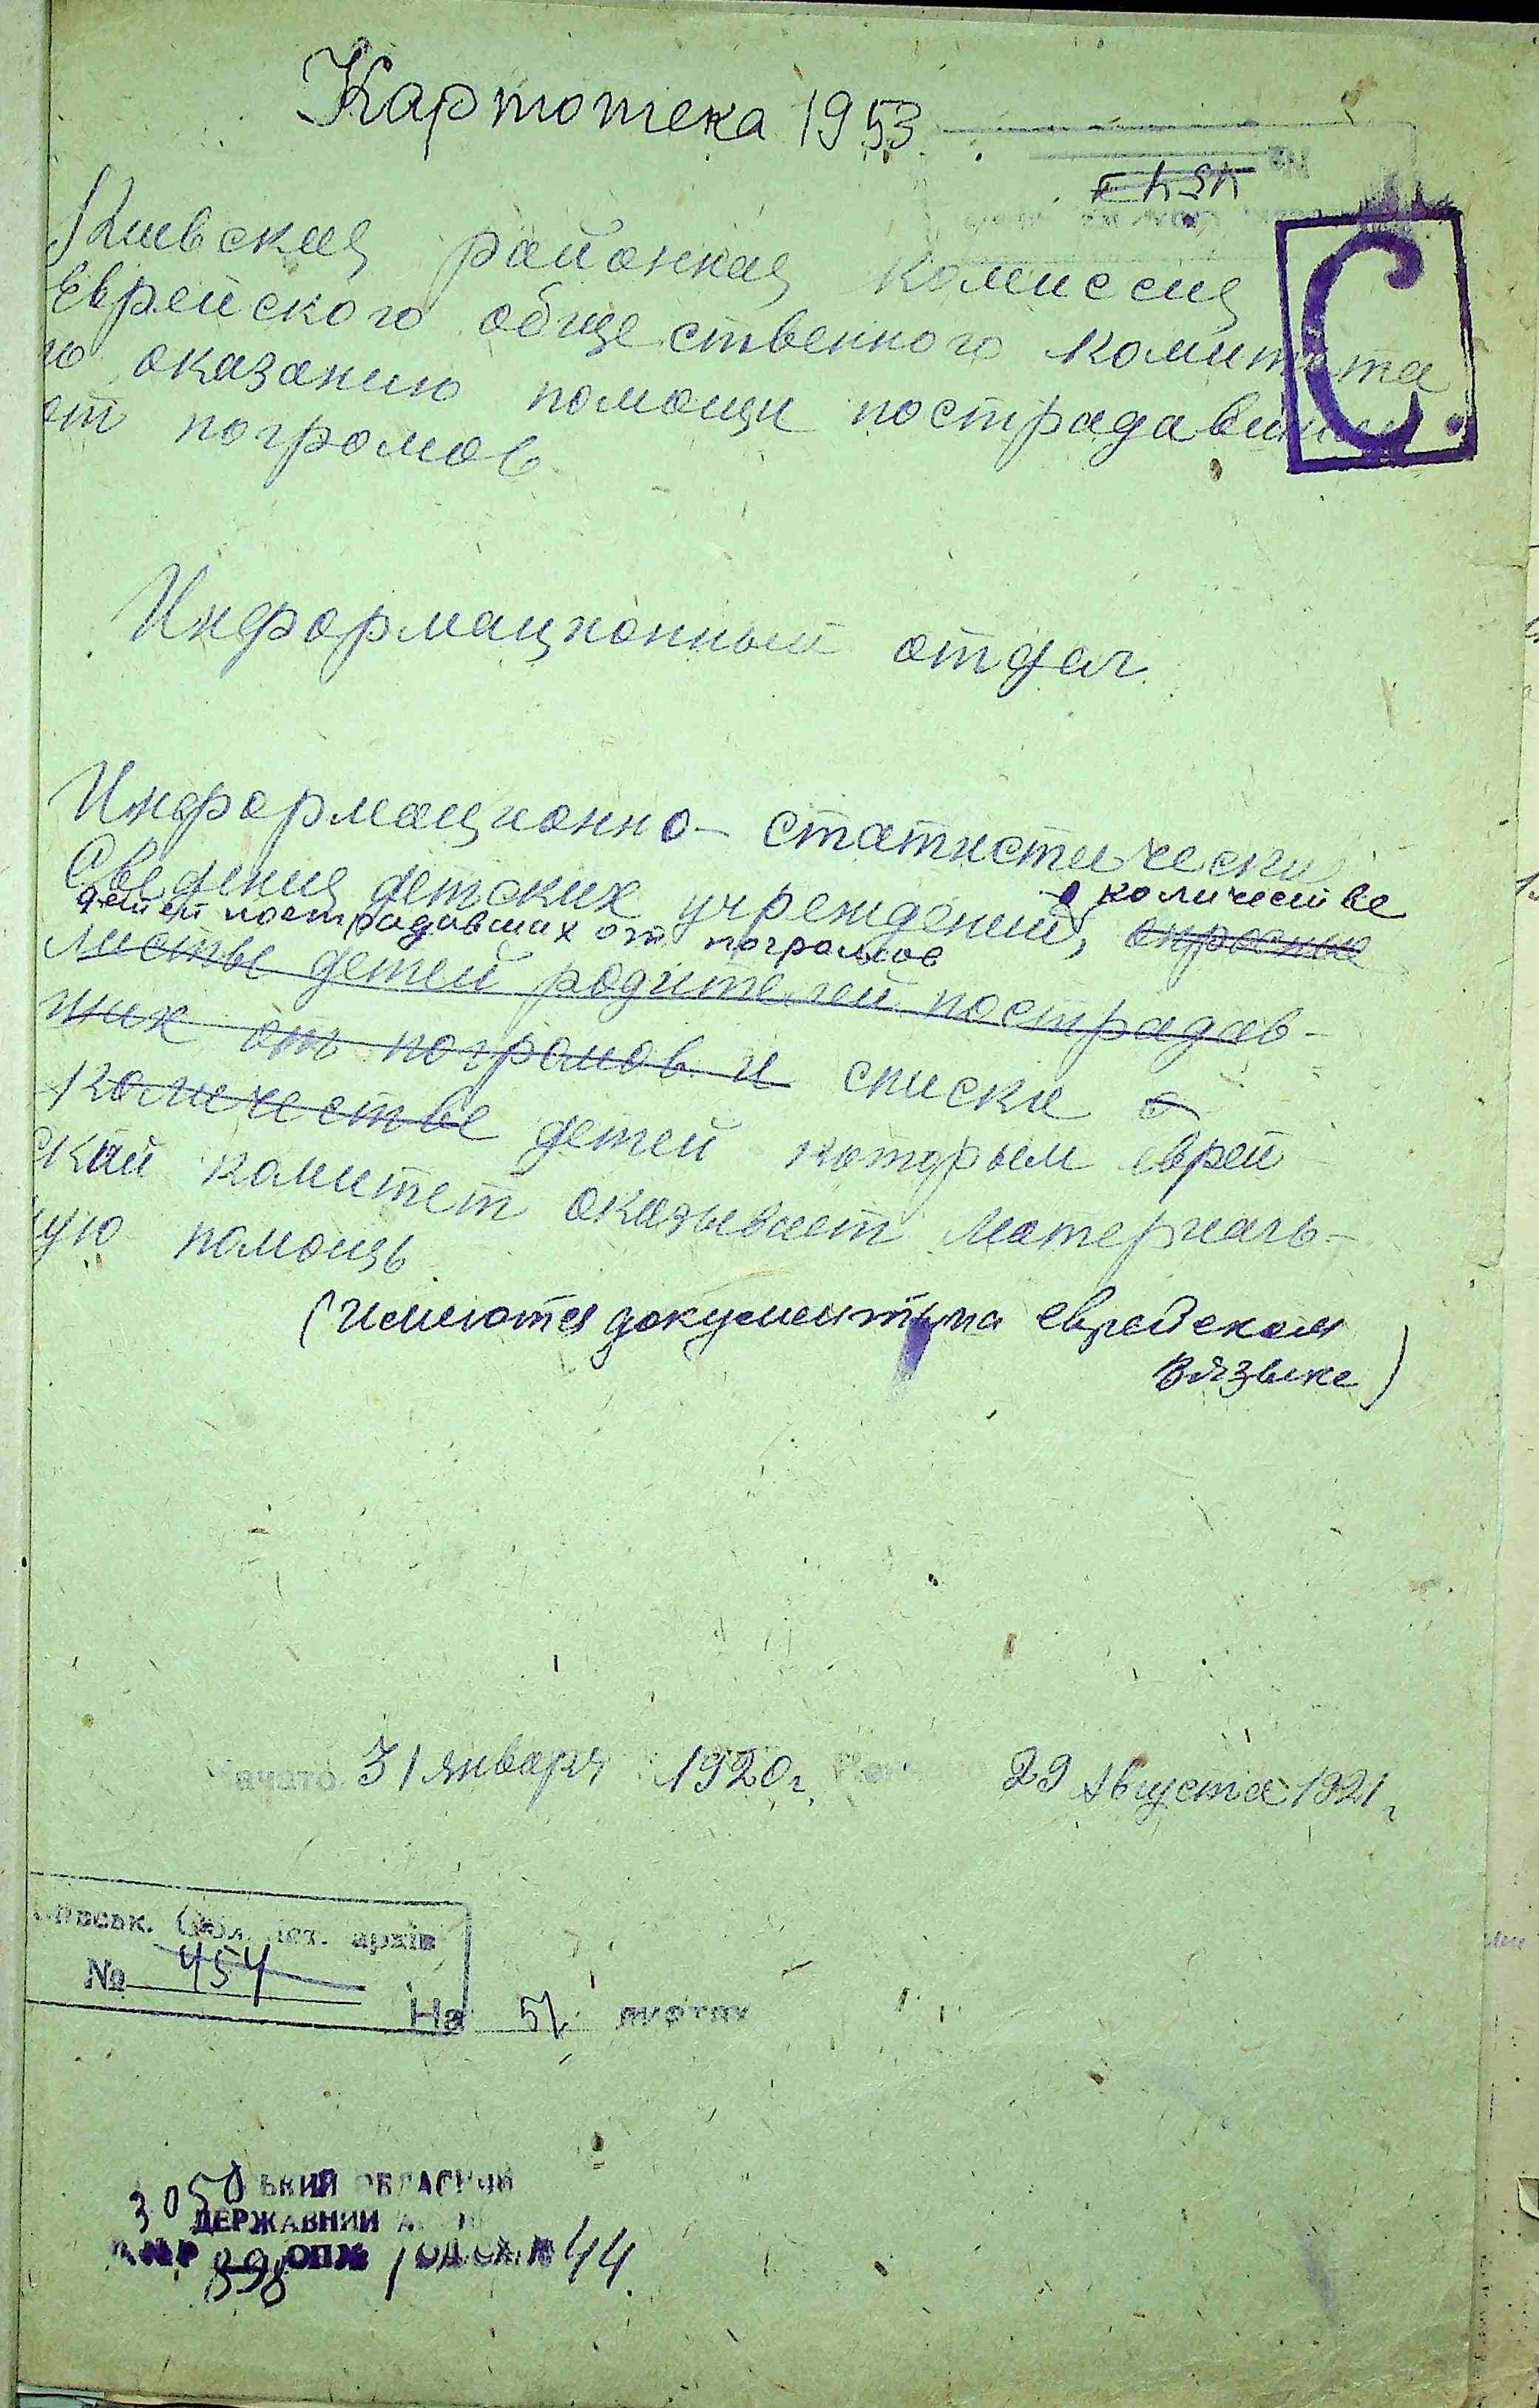 Картотека 1953
Киевская районная комиссия
Еврейского общественного комитета
по оказанию помощи пострадавшим
от погромов
С
Информационный отдел
Информационно-статистически
Сведения детских учреждений, опросные
о количестве
детей пострадавших от погромов
листы детей родителей пострадав-
ших от погромов и списки о
количестве детей которым еврей
ский комитет оказывает материаль-
ную помощь
(имеются документы на еврейском
языке)
Начато 31 января 1920 г. 29 Августа 1921 г.
обл. іст. архів
№ 454
На 51 листах
ЬКИЙ ОБЛАСНИЙ
3050
ДЕРЖАВНИЙ
Р 898 ОП № 1 ОД.СХ.№ 44